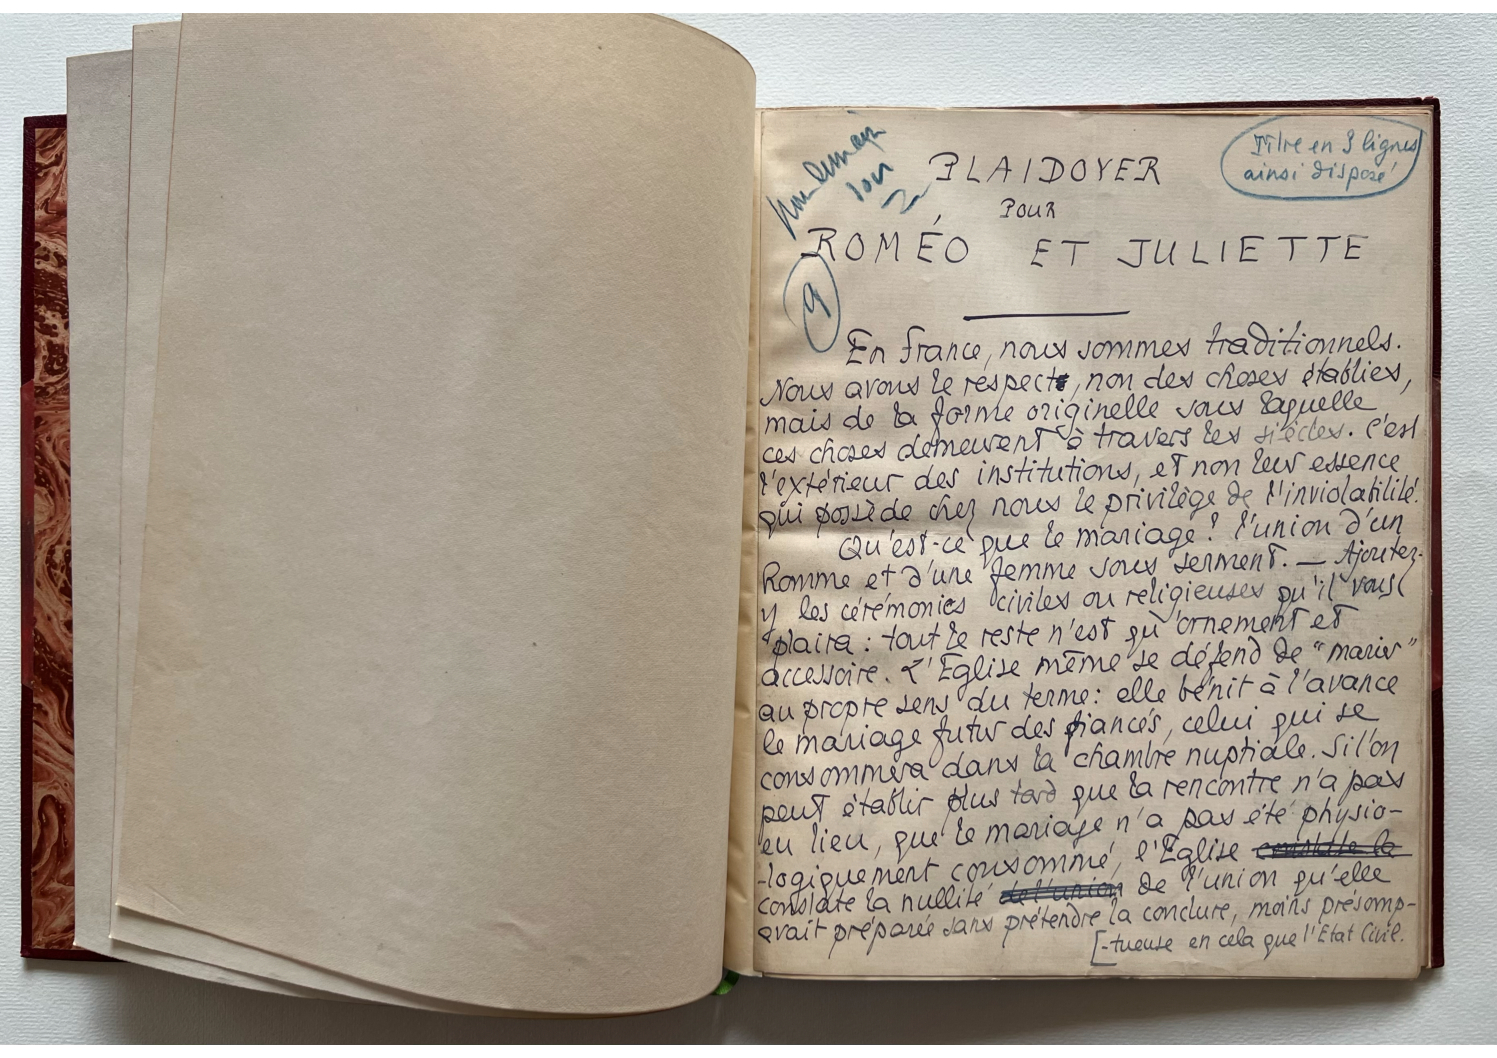 Titre en 3 lignes
ainsi disposé
PLAIDOYER
POUR
ROMÉO ET JULIETTE
9
En France, nous sommes traditionnels.
Nous avons le respect, non des choses établies,
mais de la forme originelle sous laquelle
ces choses demeurent à travers les siècles. C'est
l'extérieur des institutions, et non leur essence
qui possède chez nous le privilège de l'inviolabilité.
Qu'est-ce que le mariage? l'union d'un
homme et d'une femme sous serment. — Ajoutez-
y les cérémonies civiles ou religieuses qu'il vous
plaira : tout le reste n'est qu'ornement et
accessoire. L'Église même se défend de "marier"
au propre sens du terme : elle bénit à l'avance
le mariage futur des fiancés, celui qui se
consommera dans la chambre nuptiale. Si l'on
peut établir plus tard que la rencontre n'a pas
eu lieu, que le mariage n'a pas été physio-
-logiquement consommé, l'Église constate la
constate la nullité de l'union de l'union qu'elle
avait préparée sans prétendre la conclure, moins présomp-
[-tueuse en cela que l'Etat Civil.